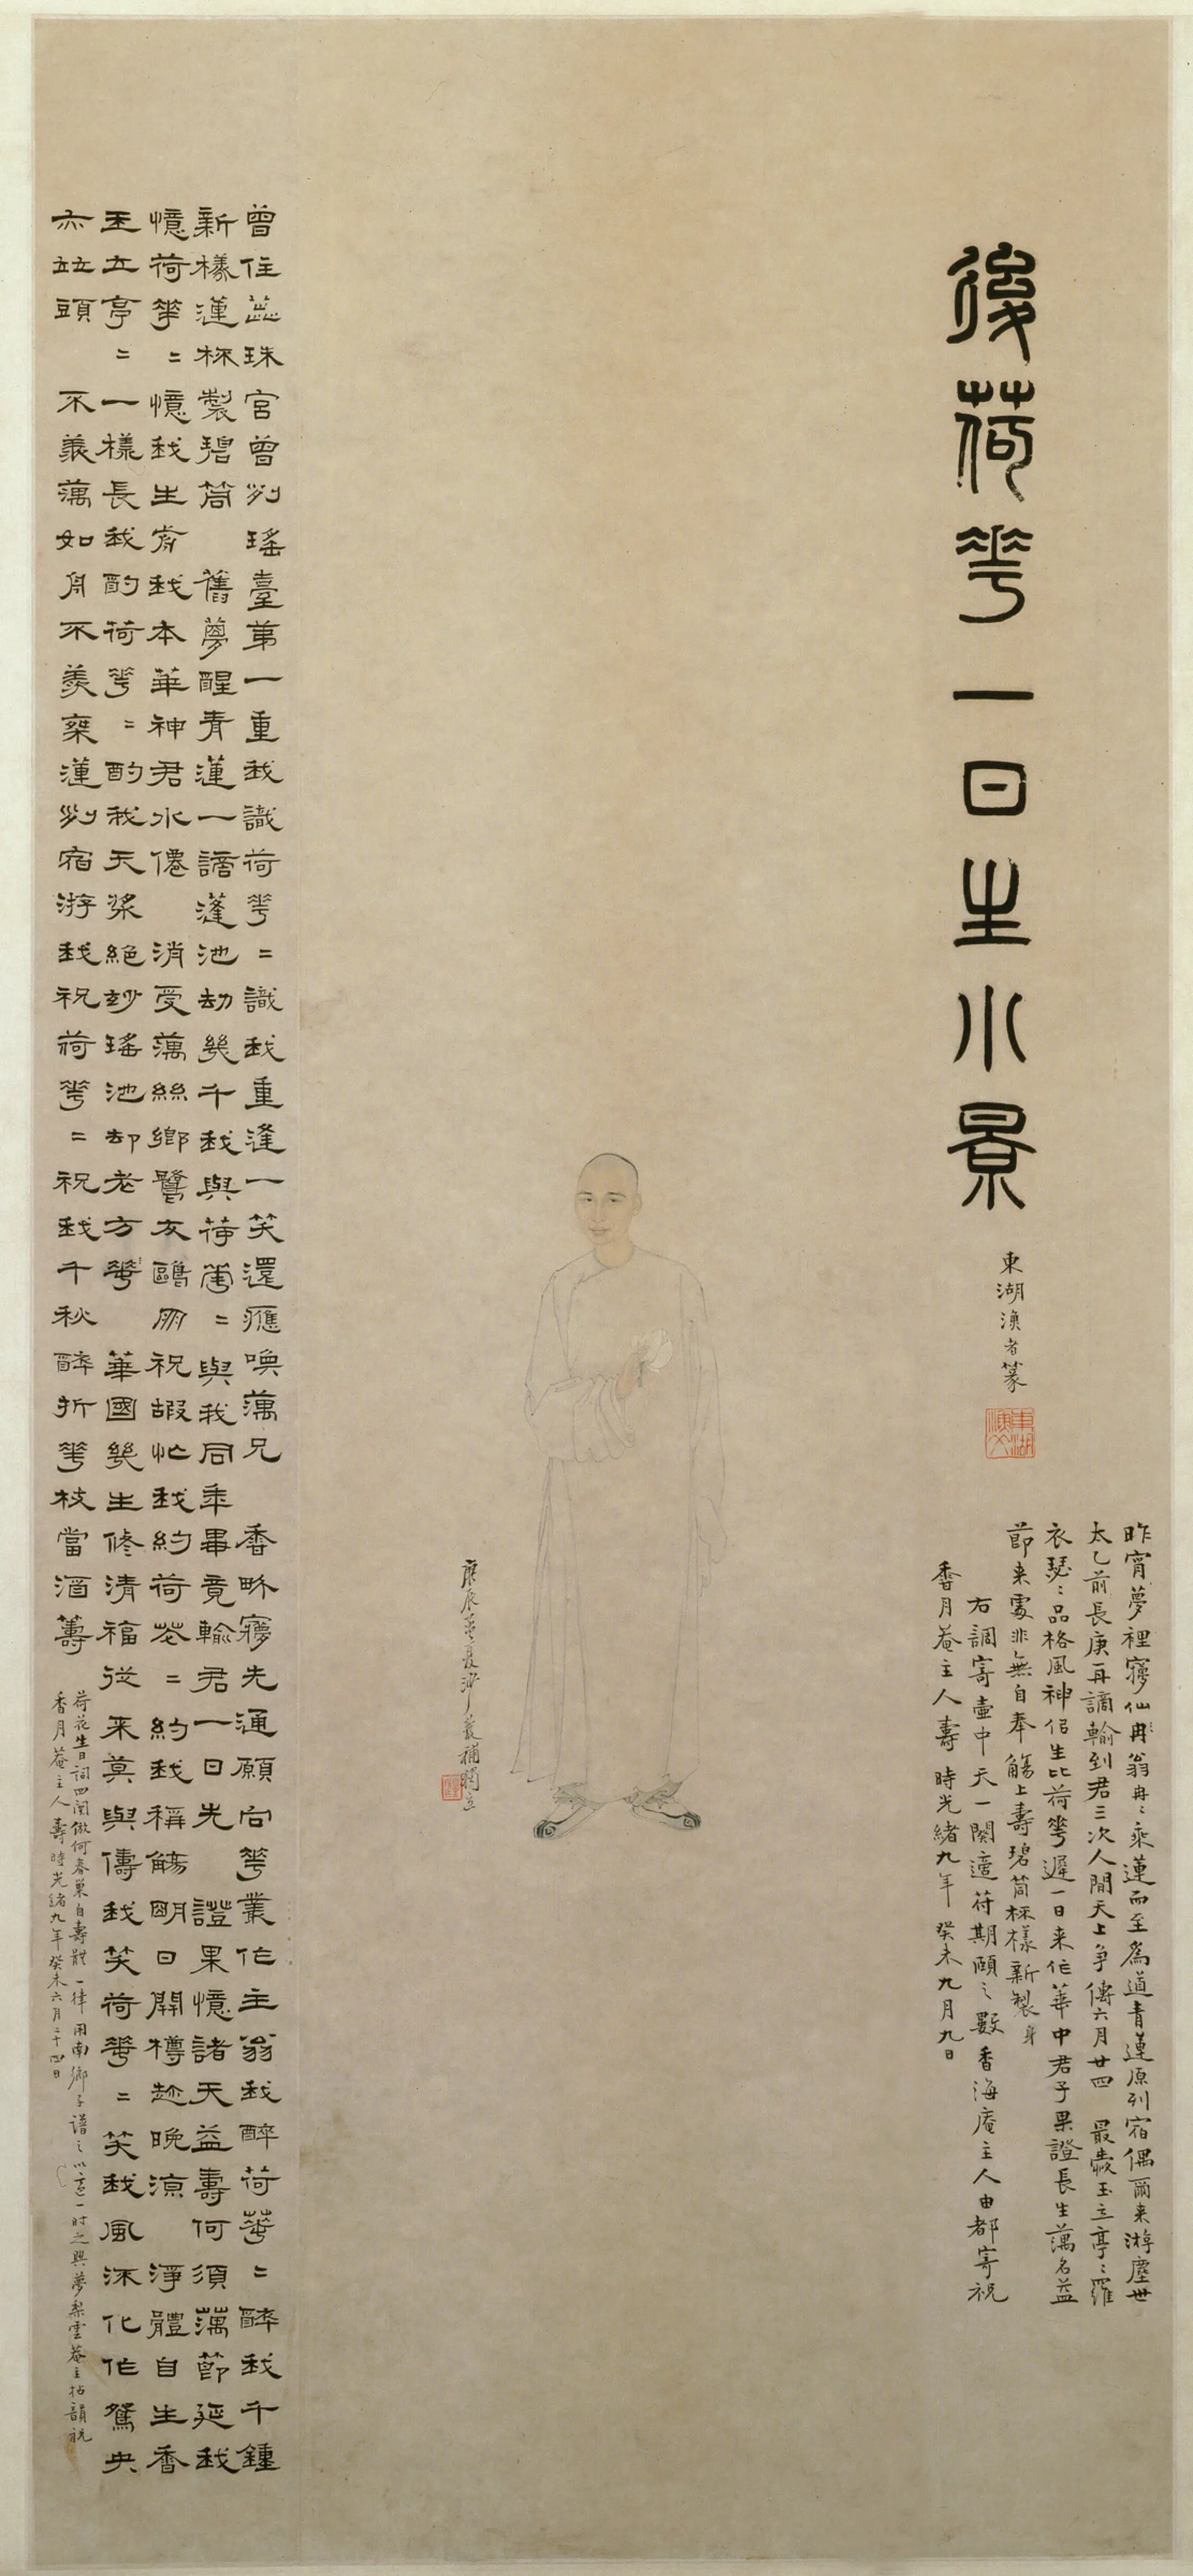 後荷花一日生小景
東湖漁者篆
昨宵夢裡㝱仙翁冉〻乘蓮而至為道青蓮原列宿偶爾來游塵世
太乙前長庚再謫輪到君三次人間天上爭傳六月廿四 最羨玉立亭〻羅
衣瑟〻品格風神侶生比荷花遲一日來作華中君子果證長生藕名益
節來處非無自奉觴上壽碧筒杯樣新製身
右調寄壺中天一闋適符期頤之數香海庵主人由都寄祝
香月菴主人壽 時光緒九年癸未九月九日
庚辰孟夏沙馥補
曾住蕊珠宮曾列瑤臺第一重我識荷花〻識我重逢一笑還應喚藕兄 香畹㝱先通願向花叢作主翁我醉荷花〻醉我千鍾
新樣蓮杯製碧筒 舊夢醒青蓮一謫蓬池劫幾千我與荷花〻與我同年畢竟輸君一日先 證果憶諸天益壽何須藕節延我
憶荷花〻憶我生前我本華神君水僊 消受藕絲鄉鷺友鷗朋祝嘏忙我約荷花〻約我稱觴明日開樽趁晚涼 淨體自生香
玉立亭〻一樣長我酌荷花〻酌我天漿絕妙瑤池却老方 華國幾生修清福從來莫與儔我笑荷花〻笑我風流化作鴛央
亦竝頭 不羨藕如舟不羨乘蓮列宿游我祝荷花〻祝我千秋醉折花枝當酒籌
荷花生日詞四闋倣何春巢自壽體一律用南鄉子譜之以志一時之興夢梨雲菴主拈韻祝
香月菴主人壽時光緒九年癸未六月二十四日